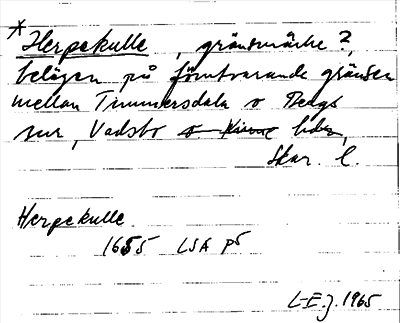 *Herpekulle, gränsmärke?,
belägen på förutvarande gränsen
mellan Timmersdala o Bergs
snr, Vadsbo o Kinne hder,
Skar. l.
Herpekulle
1655 LSA p5
L-E.J. 1965